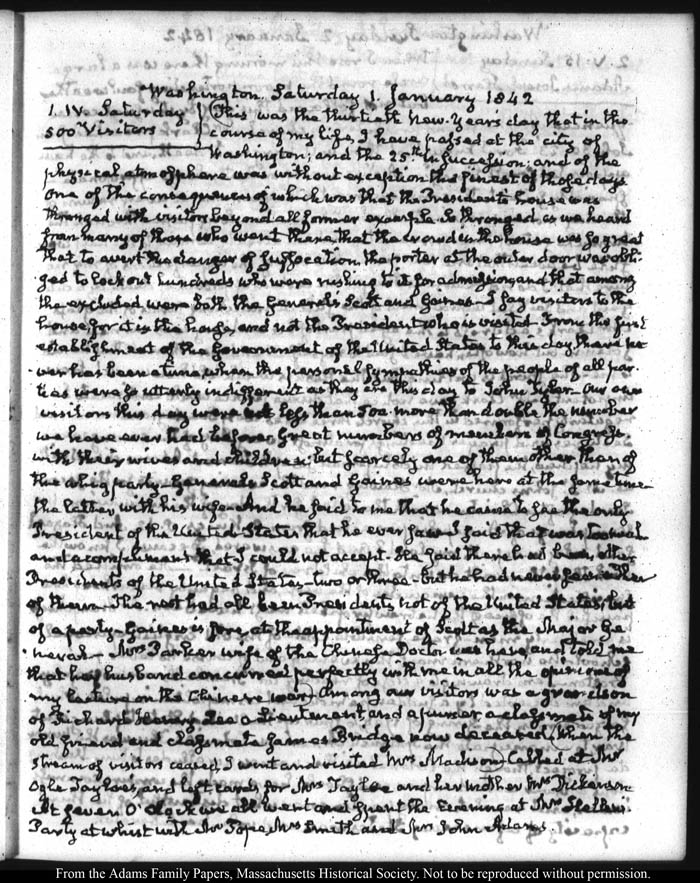 Washington Sunday 2 January 1842
Washington Saturday 1. January 1842
1. IV. Saturday
500 Visitors
This was the thirtieth New-Years day that in the
course of my life, I have passed at the city of
Washington; and the 25th in succession; and of the
physical atmosphere was without exception the finest of those days
One of the consequences of which was that the Presidents house was
thronged with visitors beyond all former example. So thronged, as we heard
from many of those who went there that the crowd in the house was so great
that to avert the danger of suffocation the porter at the outer door was obli-
ged to lock out hundreds who were rushing to it for admission, and that among
the excluded were both the Generals Scott and Gaines. I say visitors to the
house, for it is the house, and not the President who is visited. From the first
establishment of the Government of the United States to this day there ne
ver has been a time, when the personal sympathies of the people of all par-
ties were so utterly indifferent as they are this day to John Tyler. Our own
visitors this day were not less than 500 more than double the number
we have ever had before. Great numbers of members of Congress,
with their wives and children; but scarcely one of them other than of
the whig party. Generals Scott and Gaines were here at the same time
the latter with his wife. And he said to me that he came to see the only
President of the United States that he ever saw. I said that was too much
and a compliment that I could not accept. He said there had been other
Presidents of the United States. two or three. but he had never seen either
of them. The rest had all been Presidents, not of the United States, but
of a party. Gaines is sore, at the appointment of Scott as the Major Ge
neral. Mrs Parker wife of the Chinese Doctor was here, and told me
that her husband concurred perfectly with me in all the opinions of
my lecture on the Chinese war. Among our visitors was a grandson
of Richard Henry Lee a Lieutenant, and a purser, a classmate of my
old friend and classmate James Bridge now deceased. When the
stream of visitors ceased, I went and visited Mrs Madison. Called at Mr
Ogle Tayloe's, and left cards for Mrs Tayloe and her mother Mrs Dickinson.
At seven O'Clock we all went and spent the Evening at Mr
Party at whist with Mr Pope, Mrs Smith and Mrs John Adams.
From the Adams Family Papers, Massachusetts Historical Society. Not to be reproduced without permission.